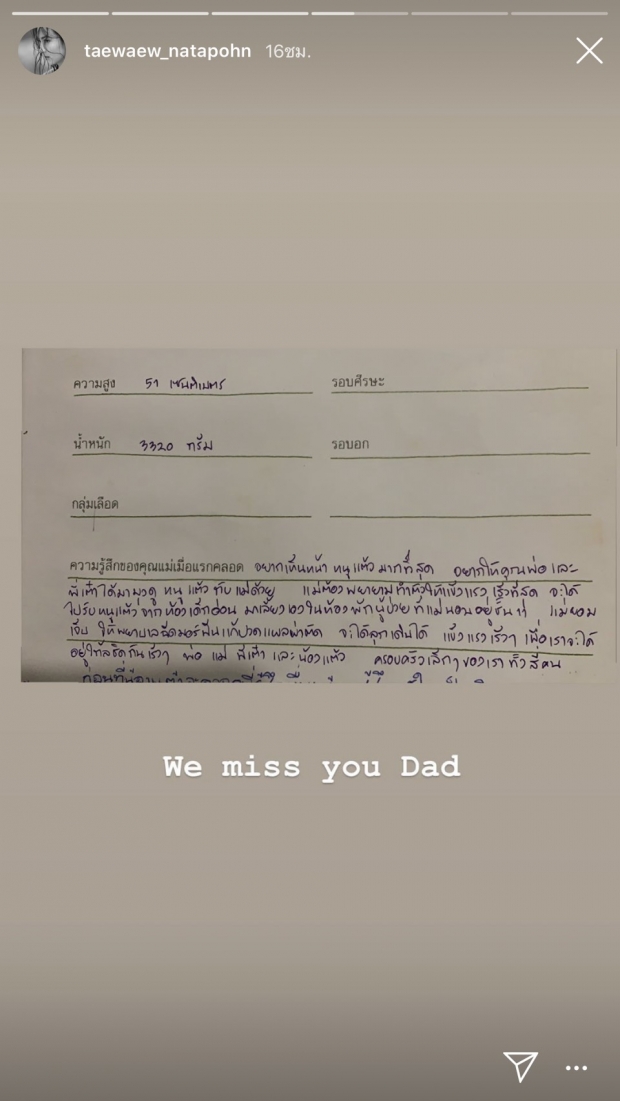 taewaew_natapohn 16ชม.
ความสูง 51 เซนติเมตร รอบศีรษะ
น้ำหนัก 3320 กรัม รอบอก
กลุ่มเลือด
ความรู้สึกของคุณแม่เมื่อแรกคลอด อยากเห็นหน้า หนูแต้ว มากที่สุด อยากให้คุณพ่อ และ
พี่เต๋าได้มาหาดู หนูแต้ว กับแม่ด้วย แม่ต้องพยายามทำตัวให้แข็งแรง เร็วที่สุด จะได้
ไปรับหนูแต้ว จากห้องเด็กอ่อน มาเลี้ยงเองในห้องพักผู้ป่วย ที่แม่นอนอยู่ชั้น 11 แม่ยอม
เจ็บ ให้พยาบาลฉีดมอร์ฟีนแก้ปวดแผลผ่าตัด จะได้ลุกเดินได้ แข็งแรงเร็วๆ เพื่อเราจะได้
อยู่ใกล้ชิดกันเร็วๆ พ่อ แม่ พี่เต๋า และน้องแต้ว ครอบครัวเล็กๆ ของเราทั้งสี่คน
We miss you Dad